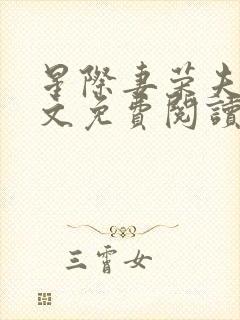 星際妻榮夫
文免費閱讀
三霄女